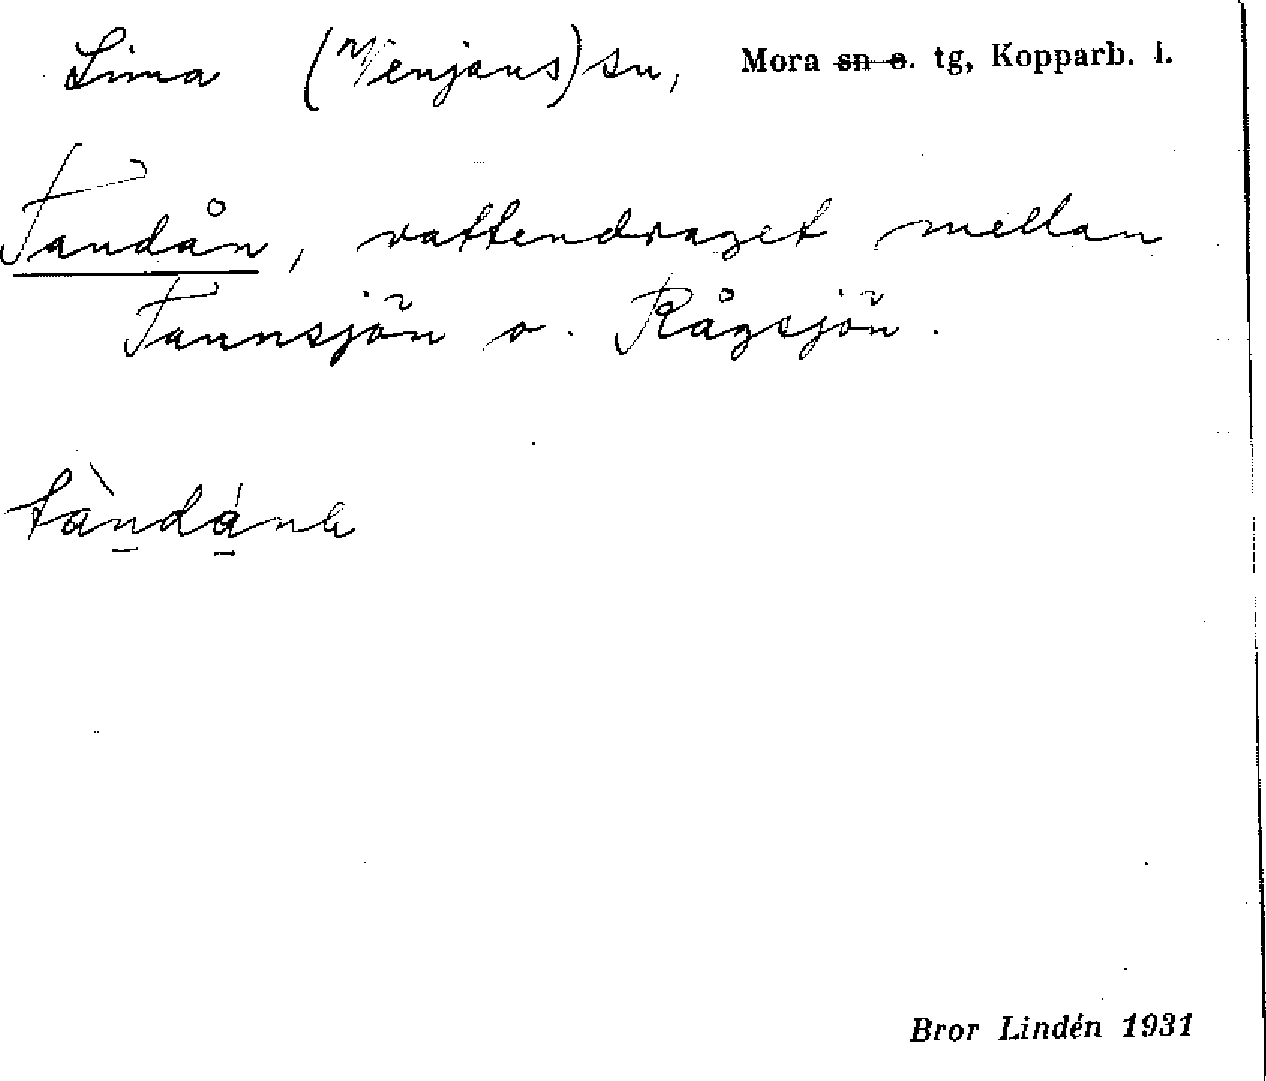 Lima (Venjans) sn, Mora sn o. tg, Kopparb. l.
Tandån, vattendraget mellan
Tannsjön o. Rågsjön.
Bror Lindén 1931